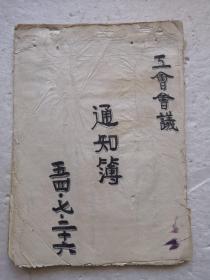 工會會議
通知簿
五四·七·二十六